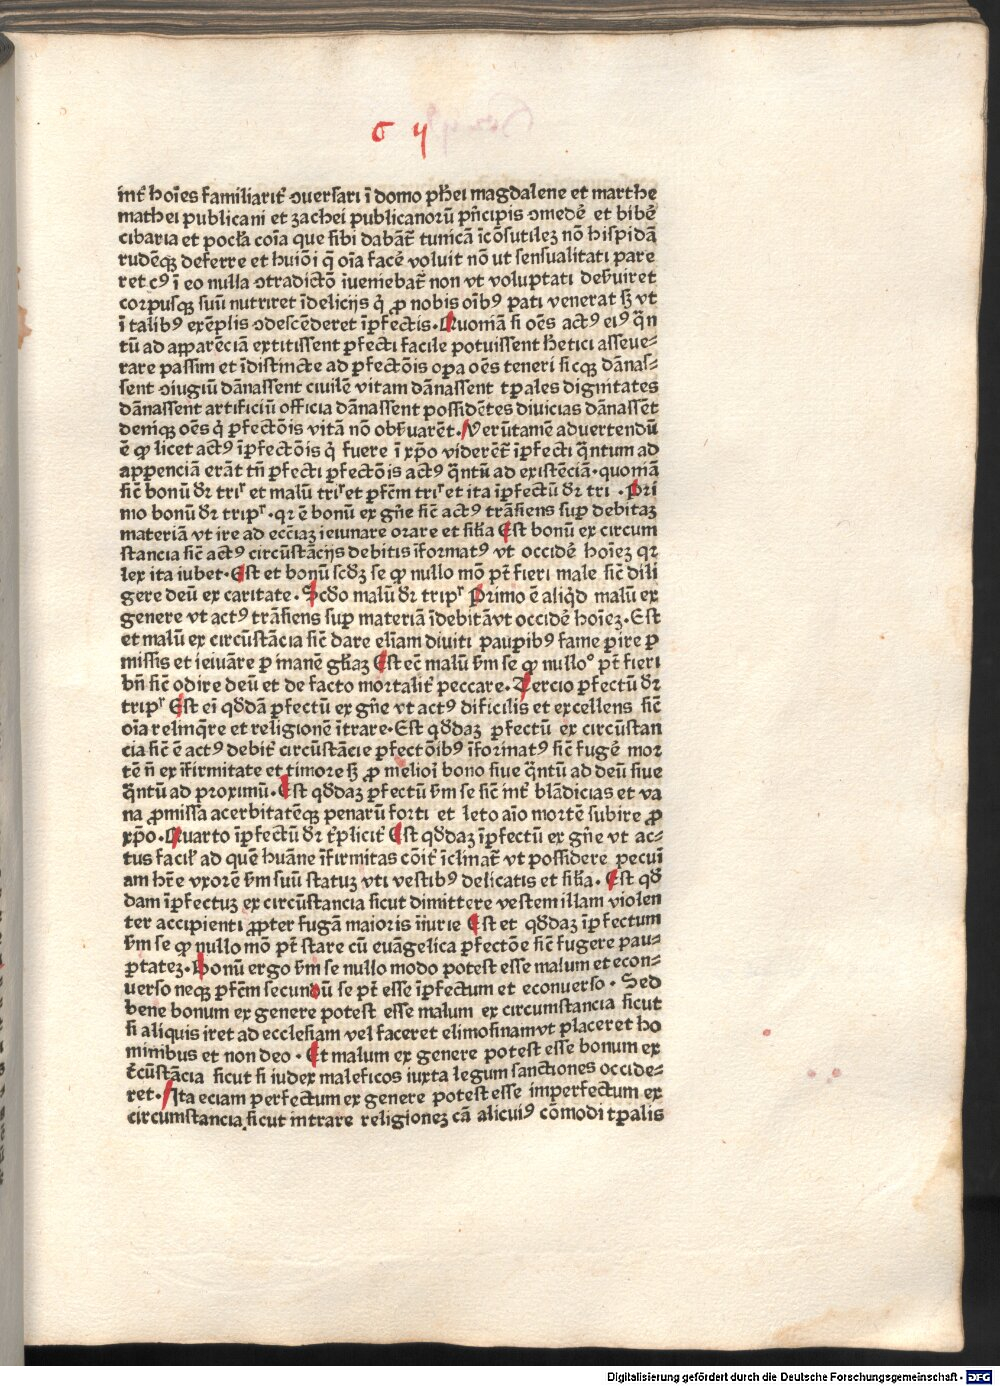 σ ij
int̄ hoīes familiarit̄ ɔuersari ī domo pħei magdalene et marthe
mathei publicani et zachei publicanorū pn̄cipis ɔmedē et bibē
cibaria et pocl̄a coīa que sibi dabāt̄ tunicā īcōsutilez nō hispidā
rudēqꝫ deferre et huiōi q̄ oīa facē voluit nō ut sensualitati pare
ret cꝰ ī eo nulla ɔtradictō īueniebat̄ non vt voluptati des̄uiret
corpusqꝫ suū nutriret īdelicijs q̇ ꝓ nobis oībꝰ pati venerat sꝫ vt
ī talibꝰ exēplis ɔdescēderet īꝑfectis. Quoniā si oēs actꝰ eiꝰ q̄n
tū ad apparēciā extitissent ꝑfecti facile potuissent ħetici asseue⸗
rare passim et īdistincte ad ꝑfectōis oꝑa oēs teneri sicqꝫ dānas⸗
sent ɔiugiū dānassent ciuilē vitam dānassent tꝑales dignitates
dānassent artificiū officia dānassent possidētes diuicias dānassēt
deniqꝫ oēs q̇ ꝑfectōis vitā nō obs̄uarēt. Uerūtamē aduertendū
ē ꝙ licet actꝰ īꝑfectōis q̇ fuere ī xp̄o viderēt̄ īꝑfecti q̄ntum ad
apꝑenciā erāt tn̄ ꝑfecti ꝑfectōis actꝰ q̄ntū ad existēciā. quoniā
sic̄ bonū dr̄ triͬ et malū triͬ et ꝑfc̄m triͬ et ita īꝑfectū dr̄ tri . Pri
mo bonū dr̄ tripͬ . qꝛ ē bonū ex gn̄e sic̄ actꝰ trāsiens suꝑ debitaꝫ
materiā vt ire ad ecc̄iaꝫ ieiunare orare et sil̄ia Est bonū ex circum
stancia sic̄ actꝰ circūstācijs debitis īformatꝰ vt occidē hoīeꝫ qꝛ
lex ita iubet. Est et bonū scd̄ꝫ se ꝙ nullo mō pt̄ fieri male sic̄ dili
gere deū ex caritate. Scd̄o malū dr̄ tripͬ Primo ē aliq̇d malū ex
genere vt actꝰ trāsiens suꝑ materiā īdebitāvt occidē hoīeꝫ. Est
et malū ex circūstācia sic̄ dare elīam diuiti pauꝑibꝰ fame ꝑire ꝑ
missis et ieiuāre ꝑ manē gl̄iaꝫ Est ec̄ malū s̄m se ꝙ nulloͦ pt̄ fieri
bn̄ sic̄ odire deū et de facto mortalit̄ peccare. Tercio ꝑfectū dr̄
tripͬ Est eī qd̄dā ꝑfectū ex gn̄e vt actꝰ dificilis et excellens sic̄
oīa relinq̄re et religionē ītrare. Est qd̄daꝫ ꝑfectū ex circūstan
cia sic̄ ē actꝰ debit̄ circūstācie ꝑfectōibꝰ īformatꝰ sic̄ fugē mor
tē n̄ ex īfirmitate et timore sꝫ ꝓ melioī bono siue q̄ntū ad deū siue
q̄ntū ad proximū. Est qd̄daꝫ ꝑfectū s̄m se sic̄ int̄ blādicias et va
na ꝓmissa acerbitatēqꝫ penarū forti et leto aīo mortē subire ꝓ
xp̄o. Quarto īꝑfectū dr̄ t̄plicit̄ Est qd̄daꝫ īꝑfectū ex gn̄e vt ac⸗
tus facil̄ ad quē huāne īfirmitas cōit̄ īclinat̄ vt possidere pecuī
am hr̄e vxorē s̄m suū statuꝫ vti vestibꝰ delicatis et sil̄ia. Est qd̄
dam īꝑfectuꝫ ex circūstancia sicut dimittere vestem illam violen
ter accipienti ꝓpter fugā maioris īiurie Est et qd̄daꝫ īꝑfectum
s̄m se ꝙ nullo mō pt̄ stare cū euāgelica ꝑfectōe sic̄ fugere pau⸗
ꝑtateꝫ. Bonū ergo s̄m se nullo modo potest esse malum et econ⸗
uerso neqꝫ ꝑfc̄m secundū se pt̄ esse īꝑfectum et econuerso. Sed
bene bonum ex genere potest esse malum ex circumstancia sicut
si aliquis iret ad ecclesiam vel faceret elimosinamvt placeret ho
minibus et non deo. Et malum ex genere potest esse bonum ex
c̄cūstācia sicut si iudex maleficos iuxta legum sanctiones occide⸗
ret. Ita eciam perfectum ex genere potest esse imperfectum ex
circumstancia sicut intrare religioneꝫ cā alicuiꝰ cōmodi tꝑalis
Digitalisierung gefördert durch die Deutsche Forschungsgemeinschaft - DFG